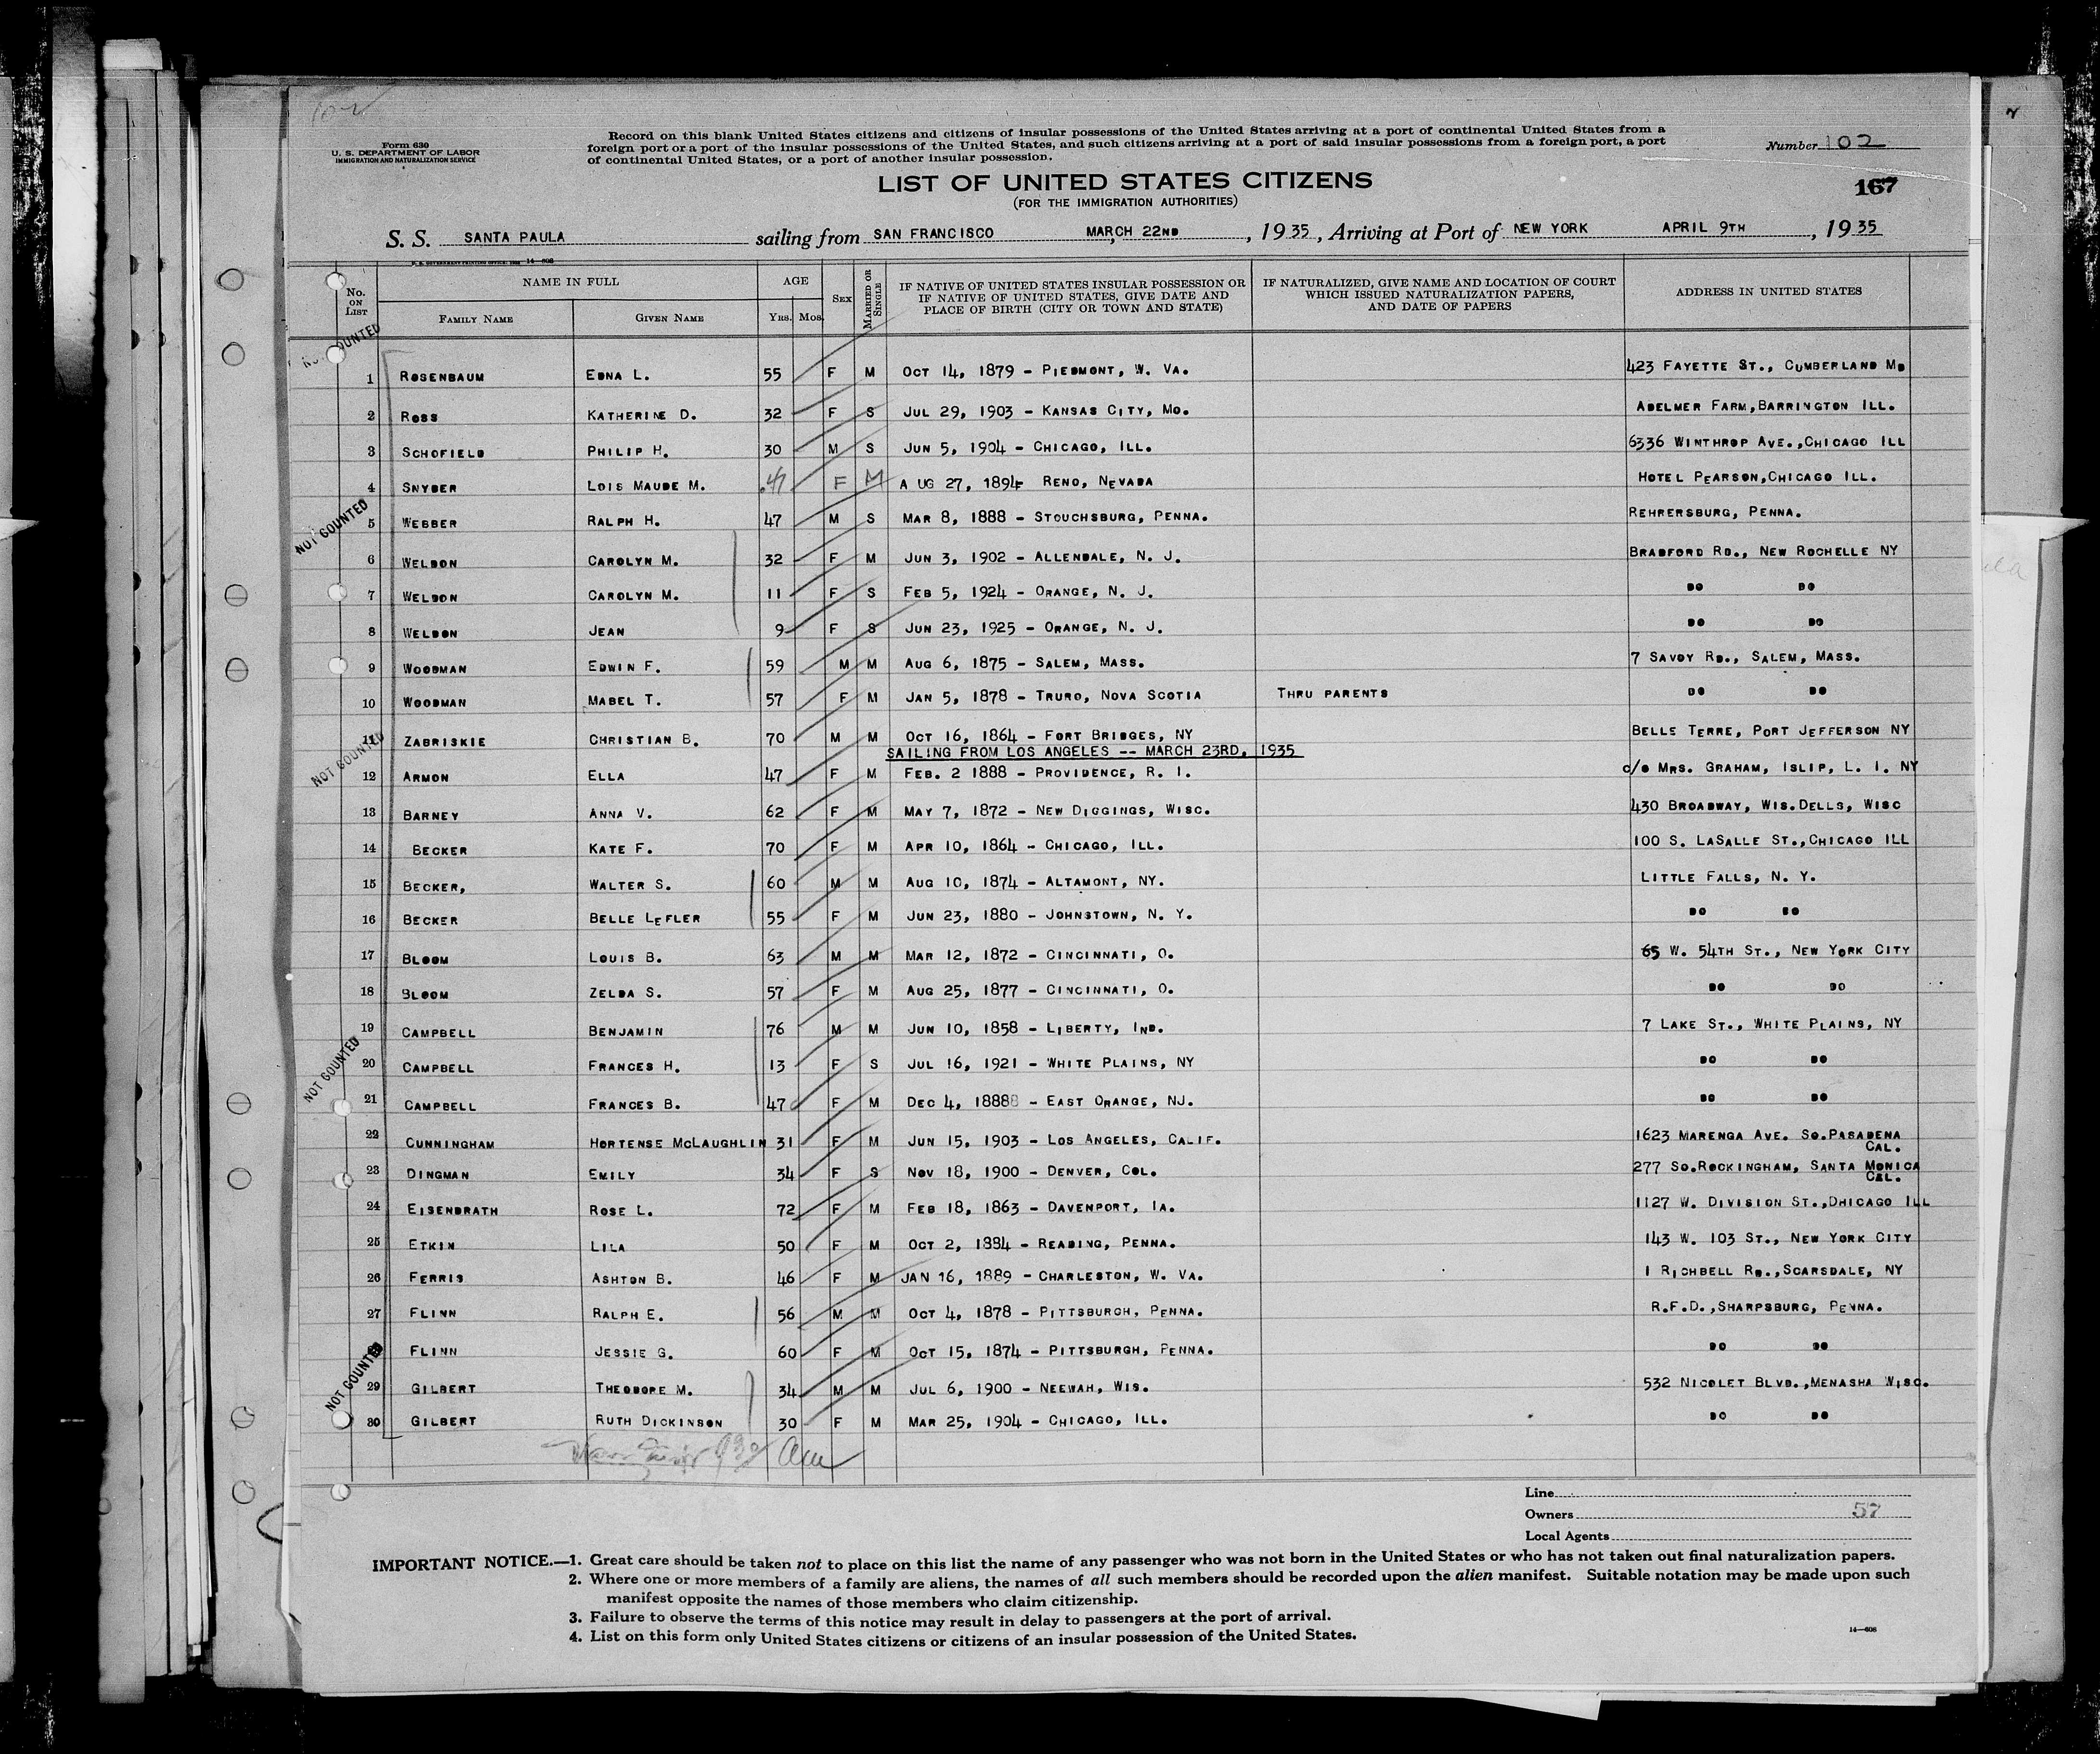 102
Form 630
U. S. DEPARTMENT OF LABOR
IMMIGRATION AND NATURALIZATION SERVICE
Record on this blank United States citizens and citizens of insular possessions of the United States arriving at a port of continental United States from a
foreign port or a port of the insular possessions of the United States, and such citizens arriving at a port of said insular possessions from a foreign port, a port
of continental United States, or a port of another insular possession.
Number 102
LIST OF UNITED STATES CITIZENS
(FOR THE IMMIGRATION AUTHORITIES)
167
S. S. SANTA PAULA sailing from SAN FRANCISCO MARCH 22ND, 1935, Arriving at Port of NEW YORK APRIL 9TH, 1935
U. S. GOVERNMENT PRINTING OFFICE 14—608
No. ON LIST NAME IN FULL FAMILY NAME GIVEN NAME AGE YRS. MOS. SEX MARRIED OR SINGLE IF NATIVE OF UNITED STATES INSULAR POSSESSION OR IF NATIVE OF UNITED STATES, GIVE DATE AND PLACE OF BIRTH (CITY OR TOWN AND STATE) IF NATURALIZED, GIVE NAME AND LOCATION OF COURT WHICH ISSUED NATURALIZATION PAPERS, AND DATE OF PAPERS ADDRESS IN UNITED STATES
NOT COUNTED
1 ROSENBAUM EDNA L. 55 F M OCT 14, 1879 - PIEDMONT, W. VA. 423 FAYETTE ST., CUMBERLAND MD
2 ROSS KATHERINE D. 32 F S JUL 29, 1903 - KANSAS CITY, MO. ADELMER FARM,BARRINGTON ILL.
3 SCHOFIELD PHILIP H. 30 M S JUN 5, 1904 - CHICAGO, ILL. 6336 WINTHROP AVE.,CHICAGO ILL
4 SNYDER LOIS MAUDE M. F M A UG 27, 1894- RENO, NEVADA HOTEL PEARSON,CHICAGO ILL.
NOT COUNTED
5 WEBBER RALPH H. 47 M S MAR 8, 1888 - STOUCHSBURG, PENNA. REHRERSBURG, PENNA.
6 WELDON CAROLYN M. 32 F M JUN 3, 1902 - ALLENDALE, N. J. BRADFORD RD., NEW ROCHELLE NY
7 WELDON CAROLYN M. 11 F S FEB 5, 1924 - ORANGE, N. J. DO DO
8 WELDON JEAN 9 F S JUN 23, 1925 - ORANGE, N. J. DO DO
9 WOODMAN EDWIN F. 59 M M AUG 6, 1875 - SALEM, MASS. 7 SAVOY RD., SALEM, MASS.
10 WOODMAN MABEL T. 57 F M JAN 5, 1878 - TRURO, NOVA SCOTIA THRU PARENTS DO DO
11 ZABRISKIE CHRISTIAN B. 70 M M OCT 16, 1864 - FORT BRIDGES, NY BELLE TERRE, PORT JEFFERSON NY
SAILING FROM LOS ANGELES -- MARCH 23RD, 1935
NOT COUNTED
12 ARMON ELLA 47 F M FEB. 2 1888 - PROVIDENCE, R. I. c/o MRS. GRAHAM, ISLIP, L. I. NY
13 BARNEY ANNA V. 62 F M MAY 7, 1872 - NEW DIGGINGS, WISC. 430 BROADWAY, WIS.DELLS, WISC
14 BECKER KATE F. 70 F M APR 10, 1864 - CHICAGO, ILL. 100 S. LASALLE ST.,CHICAGO ILL
15 BECKER, WALTER S. 60 M M AUG 10, 1874 - ALTAMONT, NY. LITTLE FALLS, N. Y.
16 BECKER BELLE LEFLER 55 F M JUN 23, 1880 - JOHNSTOWN, N. Y. DO DO
17 BLOOM LOUIS B. 63 M M MAR 12, 1872 - CINCINNATI, O. 65 W. 54TH ST., NEW YORK CITY
18 BLOOM ZELDA S. 57 F M AUG 25, 1877 - CINCINNATI, O. DO DO
19 CAMPBELL BENJAMIN 76 M M JUN 10, 1858 - LIBERTY, IND. 7 LAKE ST., WHITE PLAINS, NY
NOT COUNTED
20 CAMPBELL FRANCES H. 13 F S JUL 16, 1921 - WHITE PLAINS, NY DO DO
21 CAMPBELL FRANCES B. 47 F M DEC 4, 18888 - EAST ORANGE, NJ. DO DO
22 CUNNINGHAM HORTENSE MCLAUGHLIN 31 F M JUN 15, 1903 - LOS ANGELES, CALIF. 1623 MARENGA AVE. SO.PASADENA CAL.
23 DINGMAN EMILY 34 F S NOV 18, 1900 - DENVER, COL. 277 SO.ROCKINGHAM, SANTA MONICA CAL.
24 EISENDRATH ROSE L. 72 F M FEB 18, 1863 - DAVENPORT, IA. 1127 W. DIVISION ST.,DHICAGO ILL
25 ETKIN LILA 50 F M OCT 2, 1884 - READING, PENNA. 143 W. 103 ST., NEW YORK CITY
26 FERRIS ASHTON B. 46 F M JAN 16, 1889 - CHARLESTON, W. VA. 1 RICHBELL RD.,SCARSDALE, NY
27 FLINN RALPH E. 56 M M OCT 4, 1878 - PITTSBURGH, PENNA. R.F.D.,SHARPSBURG, PENNA.
FLINN JESSIE G. 60 F M OCT 15, 1874 - PITTSBURGH, PENNA. DO DO
NOT COUNTED
29 GILBERT THEODORE M. 34 M M JUL 6, 1900 - NEEWAH, WIS. 532 NICOLET BLVD.,MENASHA WISC.
30 GILBERT RUTH DICKINSON 30 F M MAR 25, 1904 - CHICAGO, ILL. DO DO
Line
Owners 57
Local Agents
IMPORTANT NOTICE.—1. Great care should be taken not to place on this list the name of any passenger who was not born in the United States or who has not taken out final naturalization papers.
2. Where one or more members of a family are aliens, the names of all such members should be recorded upon the alien manifest. Suitable notation may be made upon such
manifest opposite the names of those members who claim citizenship.
3. Failure to observe the terms of this notice may result in delay to passengers at the port of arrival.
4. List on this form only United States citizens or citizens of an insular possession of the United States.
14—608